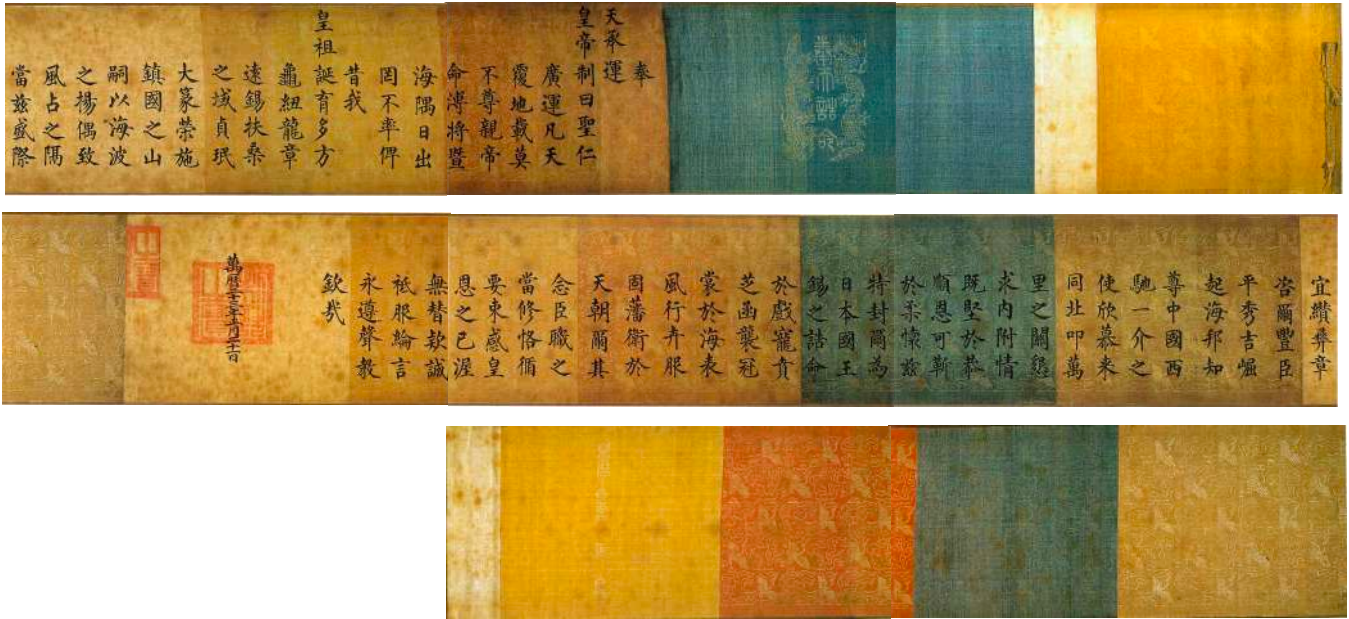 奉天誥命
奉
天承運
皇帝制曰聖仁
廣運凡天
覆地載莫
不尊親帝
命溥將暨
海隅日出
罔不率俾
昔我
皇祖誕育多方
龜紐龍章
遠錫扶桑
之域貞珉
大篆榮施
鎮國之山
嗣以海波
之揚偶致
風占之隔
當茲盛際
宜纘彝章
咨爾豐臣
平秀吉崛
起海邦知
尊中國西
馳一介之
使欣慕來
同北叩萬
里之關懇
求內附情
既堅於恭
順恩可靳
於柔懷茲
特封爾為
日本國王
錫之誥命
於戲寵賁
芝函襲冠
裳於海表
風行卉服
固藩衛於
天朝爾其
念臣職之
當修恪循
要束感皇
恩之已渥
無替款誠
祗服綸言
永遵聲教
欽哉
萬曆二十三年正月二十一日